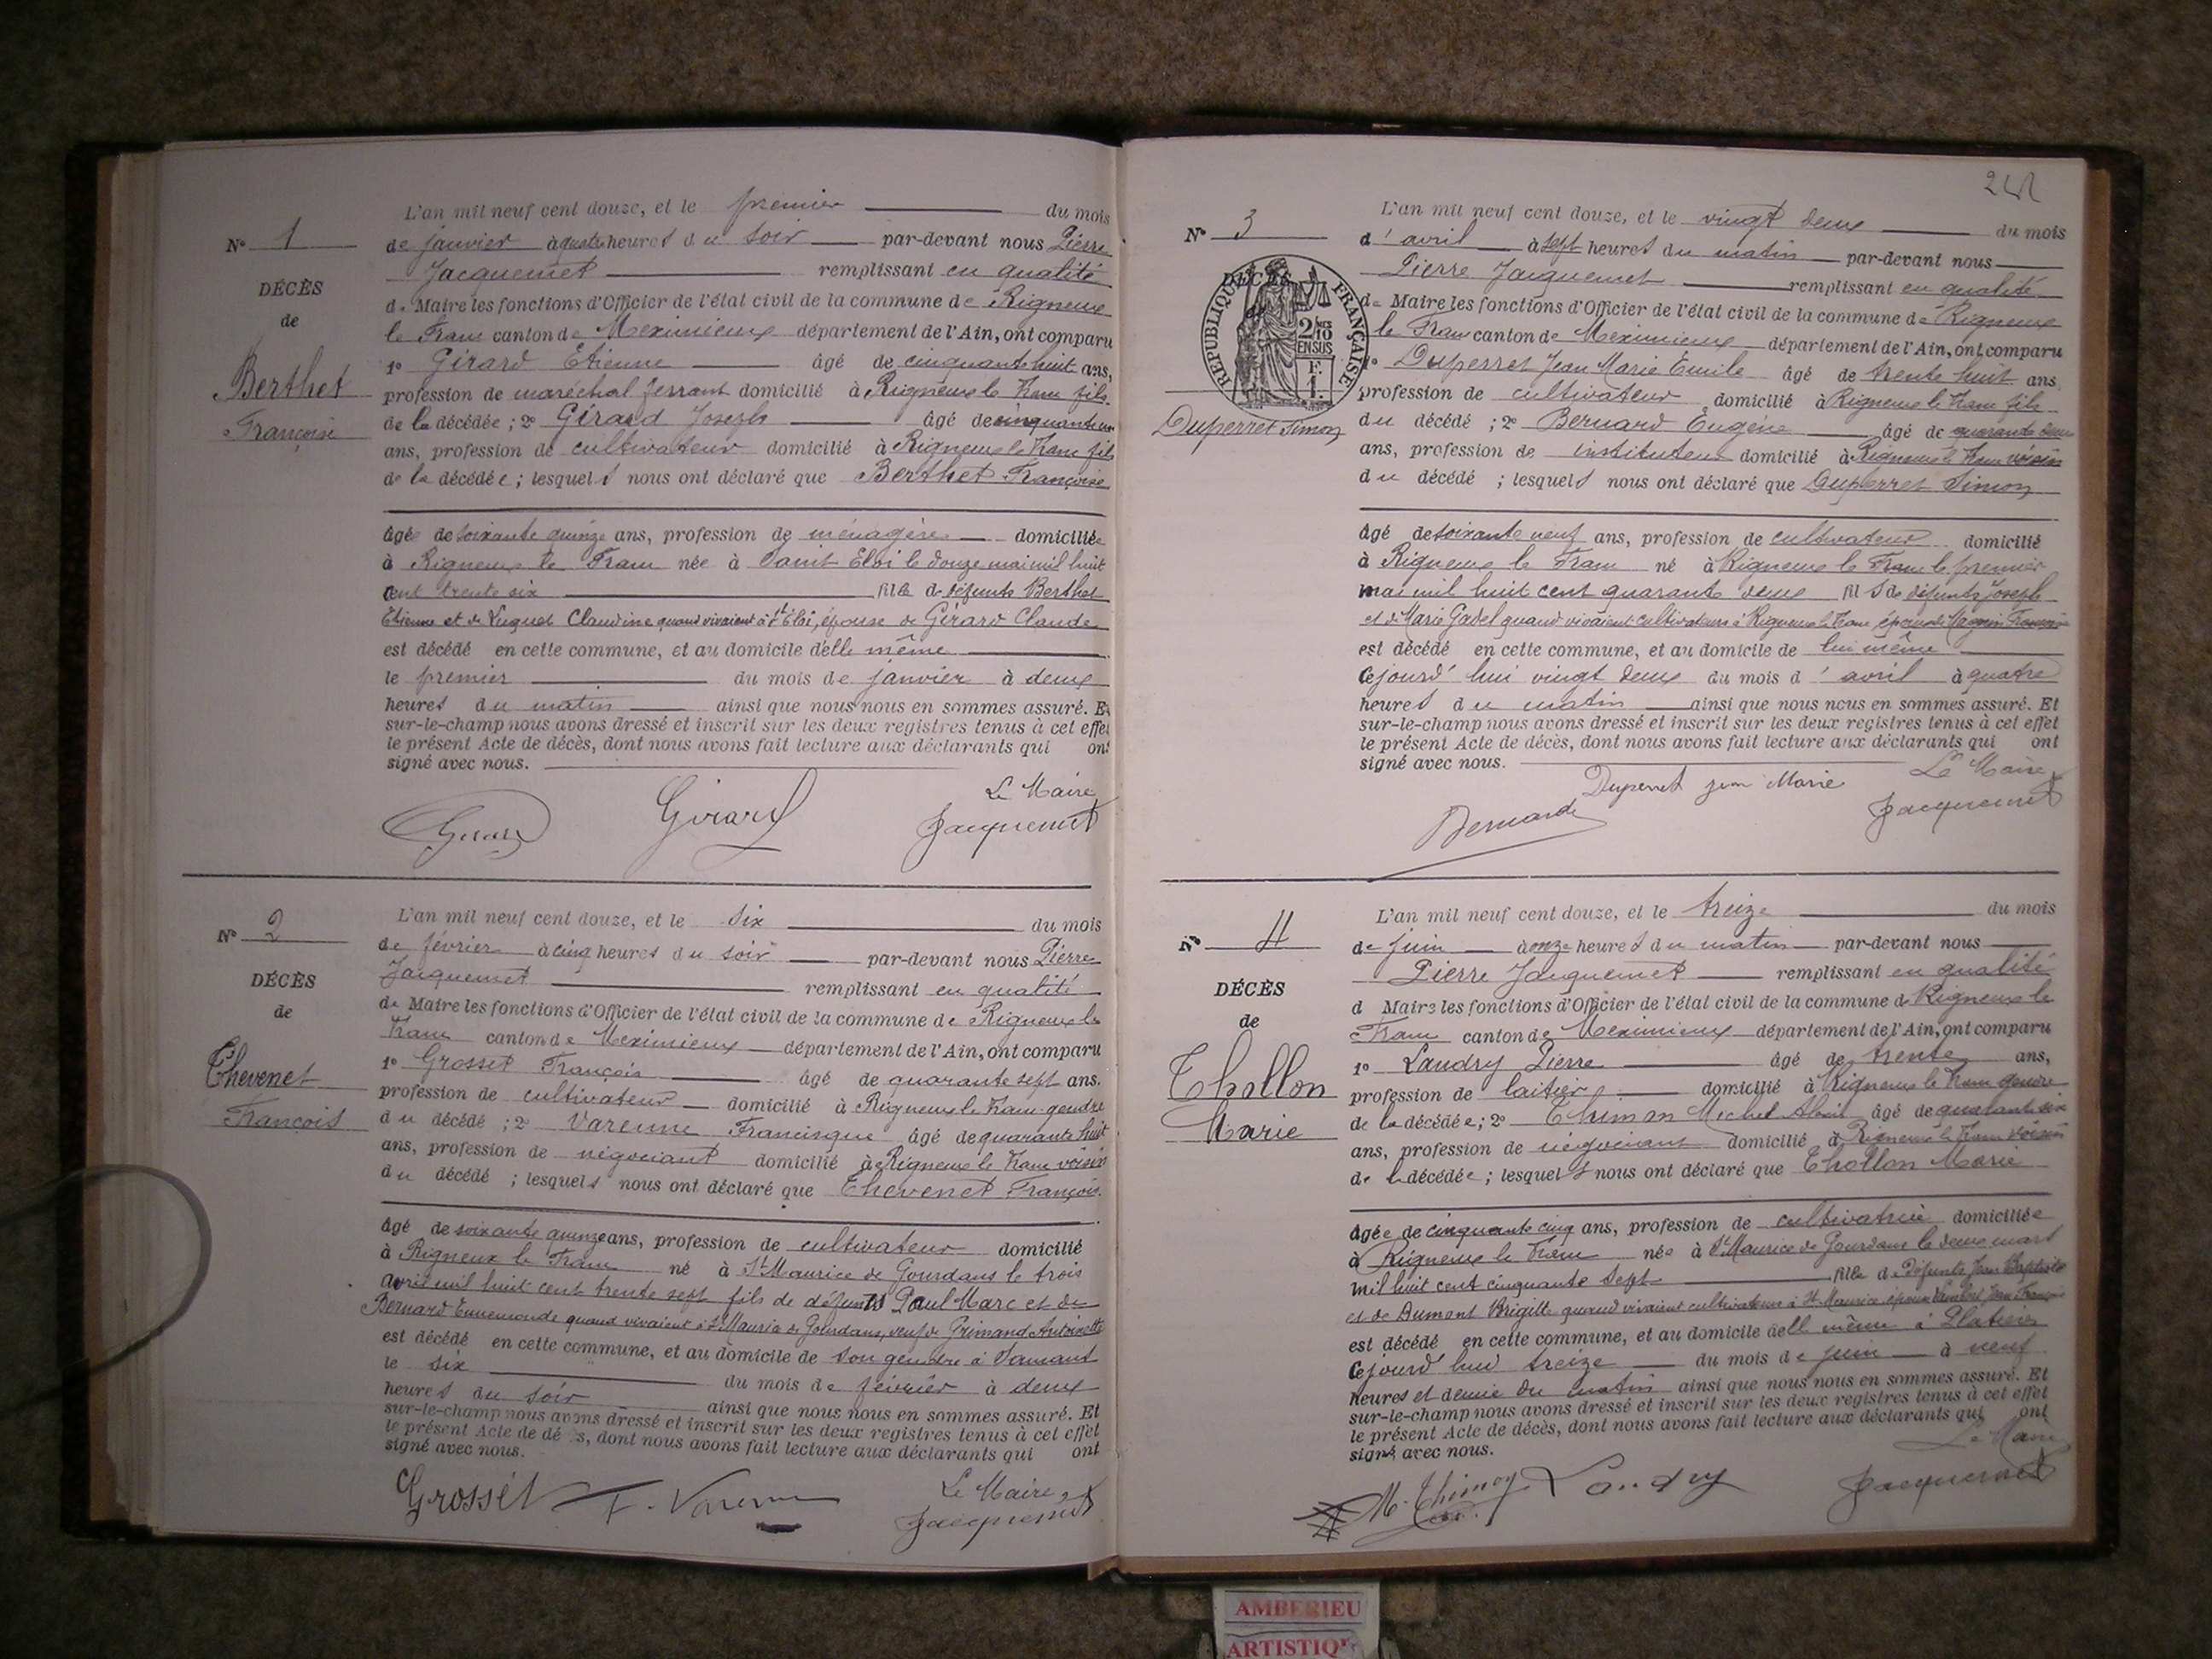 L'an mil neuf cent douze, et le premier du mois
N° 1 de janvier à quatre heures du soir par-devant nous Pierre
Jacquemet remplissant en qualité
DÉCÈS
de Maire les fonctions d'Officier de l'état civil de la commune de Rigneux
de
le Franc canton de Meximieux département de l'Ain, ont comparu
1° Girard Etienne âgé de cinquante huit ans,
Berthet
profession de maréchal ferrant domicilié à Rigneux le Franc fils
Françoise
de la décédée ; 2° Girard Joseph âgé de
ans, profession de cultivateur domicilié à Rigneux le Franc fils
de la décédée ; lesquels nous ont déclaré que Berthet Françoise
âgée de soixante quinze ans, profession de ménagère domiciliée
à Rigneux le Franc née à Saint Eloi le douze mai mil huit
cent trente six fille de défunts Berthet
Etienne et de Luquet Claudine quand vivaient à St Eloi, épouse de Girard Claude
est décédé en cette commune, et au domicile d'elle même
le premier du mois de janvier à deux
heures du matin ainsi que nous nous en sommes assuré. Et
sur-le-champ nous avons dressé et inscrit sur les deux registres tenus à cet effet
le présent Acte de décès, dont nous avons fait lecture aux déclarants qui ont
signé avec nous.
Le Maire
Girard Girard Jacquemet
L'an mil neuf cent douze, et le six du mois
N° 2 de février à cinq heures du soir par-devant nous Pierre
Jacquemet remplissant en qualité
DÉCÈS
de Maire les fonctions d'Officier de l'état civil de la commune de Rigneux le
de
Franc canton de Meximieux département de l'Ain, ont comparu
1° Grosset François âgé de quarante sept ans.
Chevenet
profession de cultivateur domicilié à Rigneux le Franc gendre
François
du décédé ; 2° Varenne Francisque âgé de quarante huit
ans, profession de négociant domicilié à Rigneux le Franc voisin
du décédé ; lesquels nous ont déclaré que Chevenet François
âgé de soixante quinze ans, profession de cultivateur domicilié
à Rigneux le Franc né à St Maurice de Gourdans le trois
avril mil huit cent trente sept fils de défunts Paul Marc et de
Bernard Ennemonde quand vivaient à St Maurice de Gourdans, veuf de Grimand Antoinette
est décédé en cette commune, et au domicile de son gendre à Samans
le six du mois de février à deux
heures du soir ainsi que nous nous en sommes assuré. Et
sur-le-champ nous avons dressé et inscrit sur les deux registres tenus à cet effet
le présent Acte de décès, dont nous avons fait lecture aux déclarants qui ont
signé avec nous.
Le Maire,
Grosset F. Varenne Jacquemet
L'an mil neuf cent douze, et le vingt deux du mois
N° 3 d'avril à sept heures du matin par-devant nous
Pierre Jacquemet remplissant en qualité
DÉCÈS
RÉPUBLIQUE FRANÇAISE
2/10
EN SUS
F.
1.
de Maire les fonctions d'Officier de l'état civil de la commune de Rigneux
le Franc canton de Meximieux département de l'Ain, ont comparu
1° Duperret Jean Marie Emile âgé de trente huit ans
profession de cultivateur domicilié à Rigneux le Franc fils
Duperret Simon
du décédé ; 2° Bernard Eugène âgé de quarante deux
ans, profession de instituteur domicilié à Rigneux le Franc voisin
du décédé ; lesquels nous ont déclaré que Duperret Simon
âgé de soixante neuf ans, profession de cultivateur domicilié
à Rigneux le Franc né à Rigneux le Franc le premier
mai mil huit cent quarante deux fils de défunts Joseph
et de Marie Gadel quand vivaient cultivateurs à Rigneux le Franc époux de
est décédé en cette commune, et au domicile de lui même
Cejourd'hui vingt deux du mois d'avril à quatre
heures du matin ainsi que nous nous en sommes assuré. Et
sur-le-champ nous avons dressé et inscrit sur les deux registres tenus à cet effet
le présent Acte de décès, dont nous avons fait lecture aux déclarants qui ont
signé avec nous.
Le Maire
Duperret jean Marie
Bernard Jacquemet
L'an mil neuf cent douze, et le treize du mois
N° 4 de juin à onze heures du matin par-devant nous
Pierre Jacquemet remplissant en qualité
DÉCÈS
d Maire les fonctions d'Officier de l'état civil de la commune de Rigneux le
de
Franc canton de Meximieux département de l'Ain, ont comparu
1° Landry Pierre âgé de trente ans,
Thollon
profession de laitier domicilié à Rigneux le Franc gendre
Marie
de la décédée ; 2° Thimon Michel âgé de quarante six
ans, profession de négociant domicilié à Rigneux le Franc voisin
de la décédée ; lesquels nous ont déclaré que Thollon Marie
âgée de cinquante cinq ans, profession de cultivatrice domiciliée
à Rigneux le Franc née à St Maurice de Gourdans le deux mars
mil huit cent cinquante sept fille de défunts Jean Baptiste
et de Dumont Brigitte quand vivaient cultivateurs à St Maurice, épouse Lambert Jean François
est décédé en cette commune, et au domicile d'elle même à Platières
Cejourd'hui treize du mois de juin à neuf
heures et demie du matin ainsi que nous nous en sommes assuré. Et
sur-le-champ nous avons dressé et inscrit sur les deux registres tenus à cet effet
le présent Acte de décès, dont nous avons fait lecture aux déclarants qui ont
signé avec nous.
Le Maire
M. Thimon Landry Jacquemet
AMBERIEU
ARTISTIQUE